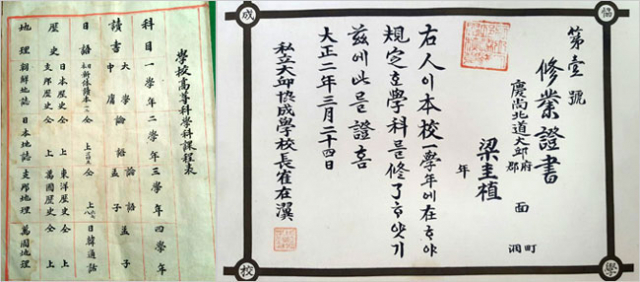 學校高等科學科課程表
科目 一學年 二學年 三學年 四學年
讀書 大學 論語 論語 孟子
中庸 孟子
日語 新体讀本 仝上 仝上 日韓通話
歷史 日本歷史 仝上 東洋歷史 仝上
支那歷史 仝上 萬國歷史 仝上
地理 朝鮮地誌 日本地誌 支那地理 萬國地理
協
成
學
校
第壹號
修業證書
慶尙北道大邱府郡 面 町洞
梁圭植
年
右人이本校一學年에在ᄒᆞ야
規定ᄒᆞᆫ學科를修了ᄒᆞ얏기
玆에此를證홈
大正二年三月二十四日
私立大邱協成學校長崔在